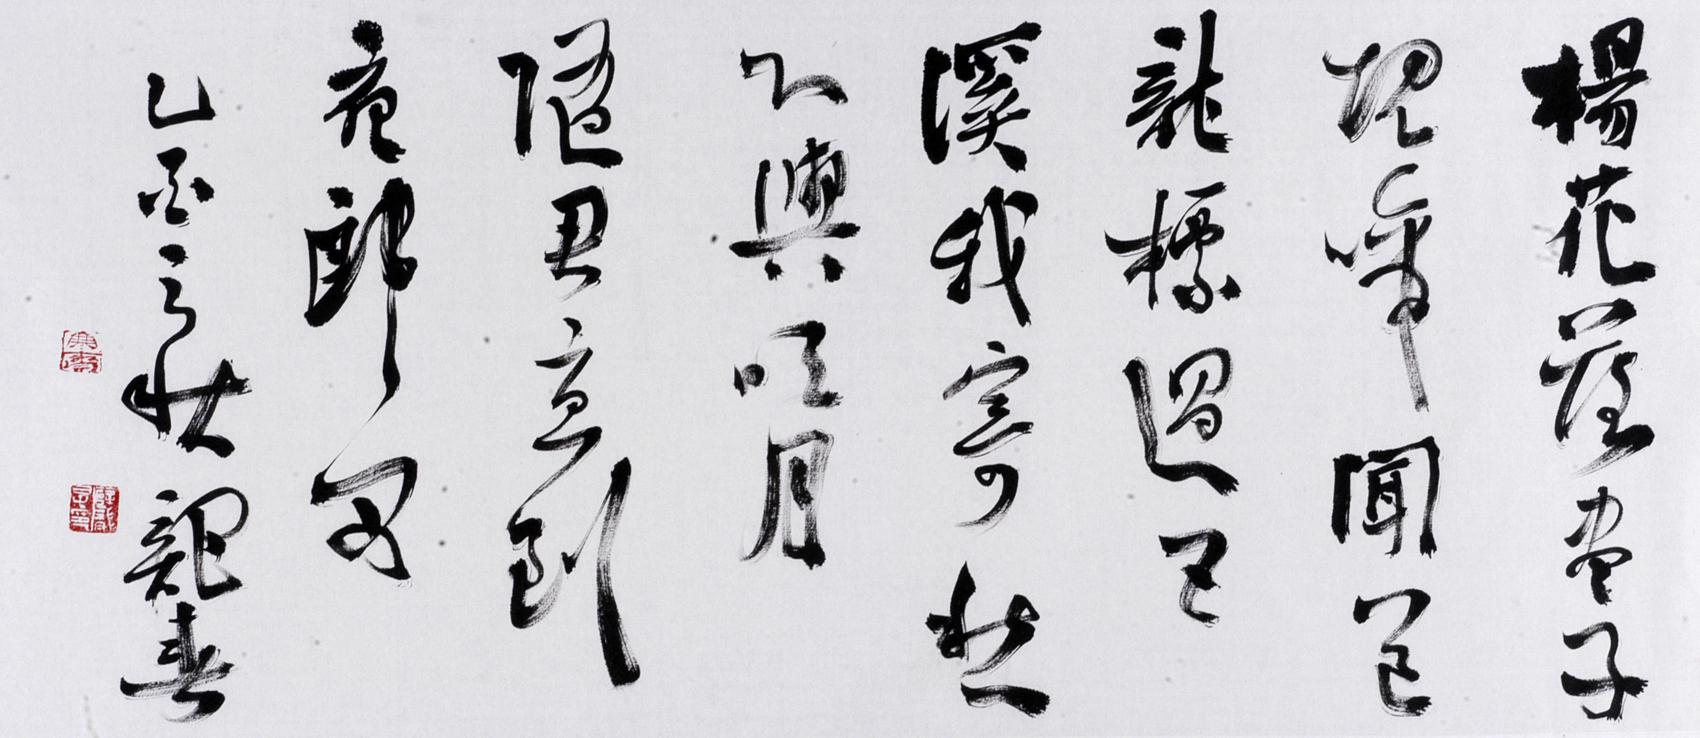 楊花落盡子
規啼聞道
龍標過五
溪我寄愁
心與明月
隨君直到
夜郎西
乙酉之秋春